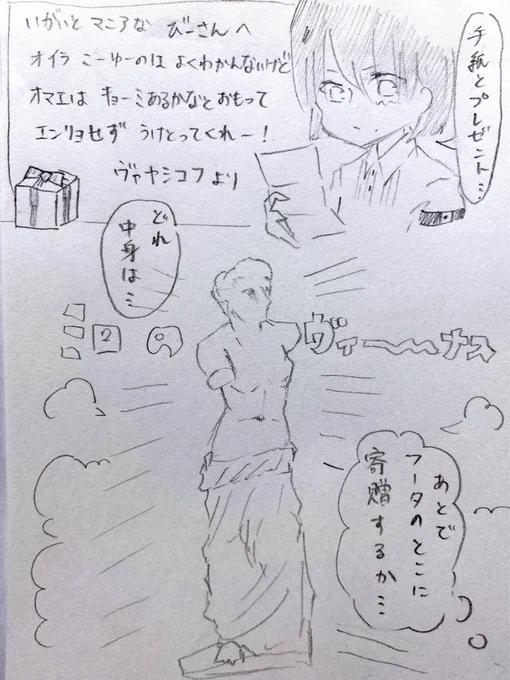 いがいと マニアな びーさんへ
オイラ こーゆーのは よくわかんないけど
オマエは キョーミあるかなとおもって
エンリョせず うけとってくれー!
ヴァヤシコフより
手紙とプレゼント…
どれ
中身は…
ミロの
ヴィーナス
あとで
フータのとこに
寄贈するか…